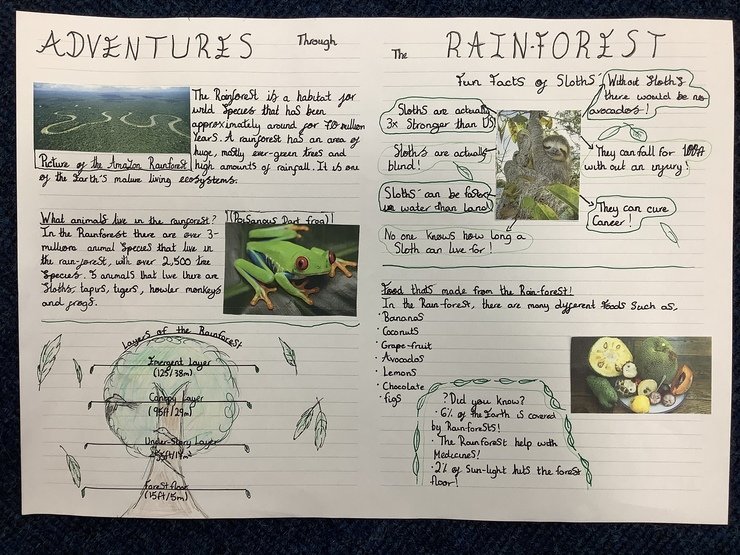 ADVENTURES Through
The RAIN-FOREST
The Rainforest is a habitat for
wild species that has been
approximatly around for 70 million
years. A rainforest has an area of
huge, mostly ever-green trees and
high amounts of rainfall. It is one
of the Earth's mature living ecosystems.
Picture of the Amazon Rainforest
What animals live in the rainforest?
In the Rainforest there are over 3-
millions animal species that live in
the rain-forest, with over 2,500 tree
species. 5 animals that live there are
Sloths, tapirs, tigers, howler monkeys
and frogs.
(Poisanous Dart frog)
Layers of the Rainforest
Emergent Layer
(125/38m)
Canopy Layer
(95ft/29m)
Under-Story Layer
Forest floor
(15ft/5m)
Fun Facts of Sloths
Sloths are actually
3x Stronger than US!
Sloths are actually
blind!
Sloths can be faster
in water than land!
No one knows how long a
Sloth can live for!
Without Sloths
there would be no
avocados!
They can fall for
with out an injury!
They can cure
Cancer!
Food thats made from the Rain-forest!
In the Rain-forest, there are many different foods such as,
· Bananas
· Coconuts
· Grape-fruit
· Avocados
· Lemons
· Chocolate
· figs
?Did you know?
· 6% of the Earth is covered
by Rain-forests!
· The Rainforest help with
Medicines!
· 2% of Sun-light hits the forest
floor!